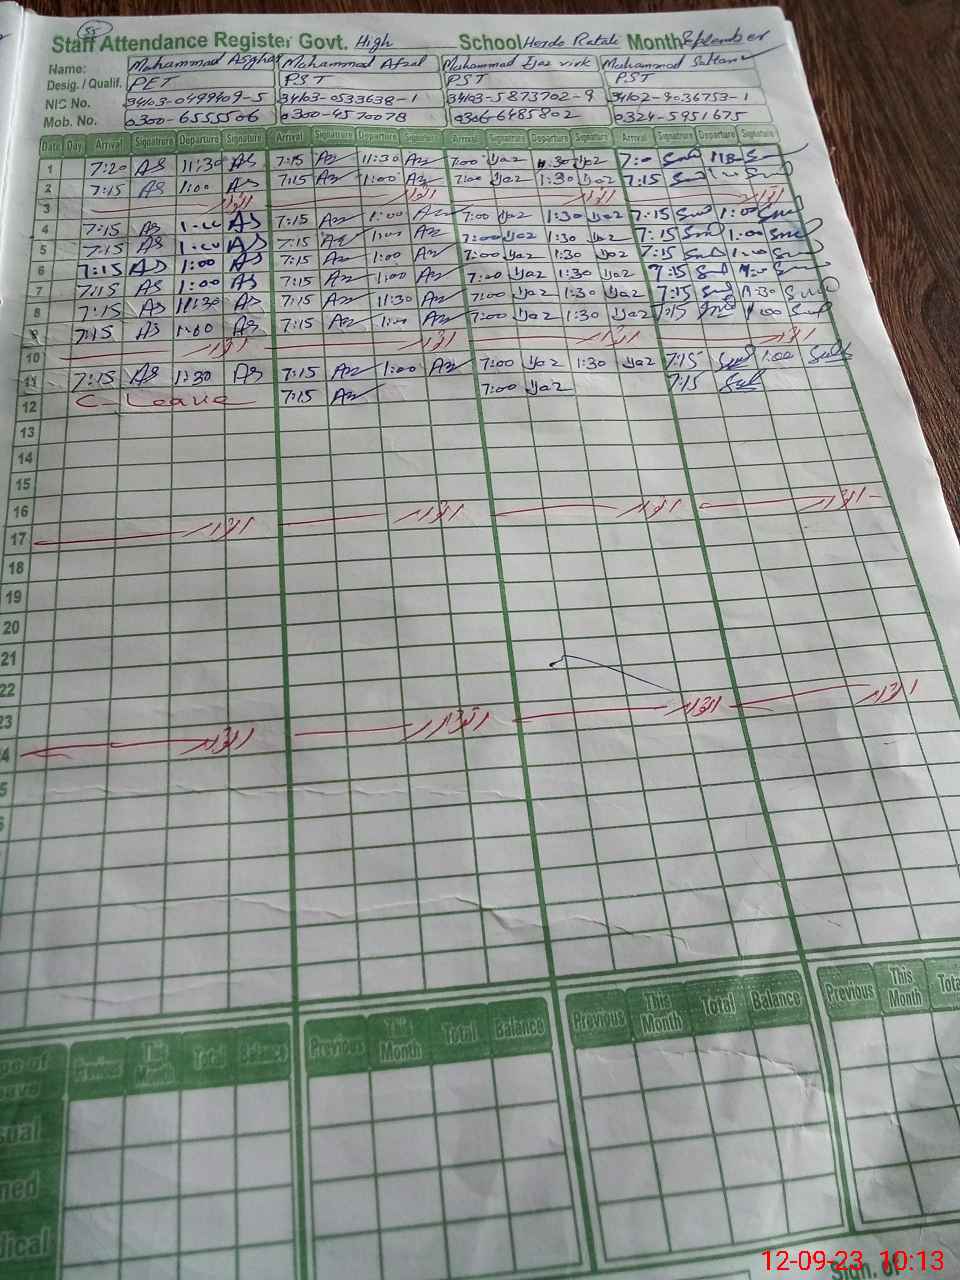 55
Staff Attendance Register Govt. High School Herdo Ratali Month September
Name: Muhammad Asghar Muhammad Afzal Muhammad Ijaz virk Muhammad Sultan
Desig. / Qualif. PET PST PST PST
NIC No. 34103-0499909-5 34103-0533638-1 34103-5873702-9 34102-4036753-1
Mob. No. 0300-6555506 0300-4570078 0306-6485802 0324-5951675
Date Day Arrival Signature Departure Signature Arrival Signature Departure Signature Arrival Signature Departure Signature Arrival Signature Departure Signature
1 7:20 AS 11:30 AS 7:15 Az 11:30 Az 7:00 Ijaz 11:30 Ijaz 7:0
2 7:15 AS 1:00 AS 7:15 Az 1:00 Az 7:00 Ijaz 1:30 Ijaz 7:15
3 اتوار اتوار اتوار اتوار
4 7:15 AS 1:00 AS 7:15 Az 1:00 Az 7:00 Ijaz 1:30 Ijaz 7:15 1:00
5 7:15 AS 1:00 AS 7:15 Az 1:00 Az 7:00 Ijaz 1:30 Ijaz 7:15 1:00
6 7:15 AS 1:00 AS 7:15 Az 1:00 Az 7:00 Ijaz 1:30 Ijaz 7:15 1:00
7 7:15 AS 1:00 AS 7:15 Az 1:00 Az 7:00 Ijaz 1:30 Ijaz 7:15
8 7:15 AS 11:30 AS 7:15 Az 11:30 Az 7:00 Ijaz 1:30 Ijaz 7:15 11:30
9 7:15 AS 1:00 AS 7:15 Az 1:00 Az 7:00 Ijaz 1:30 Ijaz 7:15 1:00
10 اتوار اتوار اتوار اتوار
11 7:15 AS 1:30 AS 7:15 Az 1:00 Az 7:00 Ijaz 1:30 Ijaz 7:15 1:00
12 C-Leave 7:15 Az 7:00 Ijaz 7:15
13
14
15
16
17 اتوار اتوار اتوار اتوار
18
19
20
21
22
23
4 اتوار اتوار اتوار اتوار
5
Previous This Month Total Balance Previous This Month Total Balance Previous This Month Total Balance Previous This Month
12-09-23 10:13